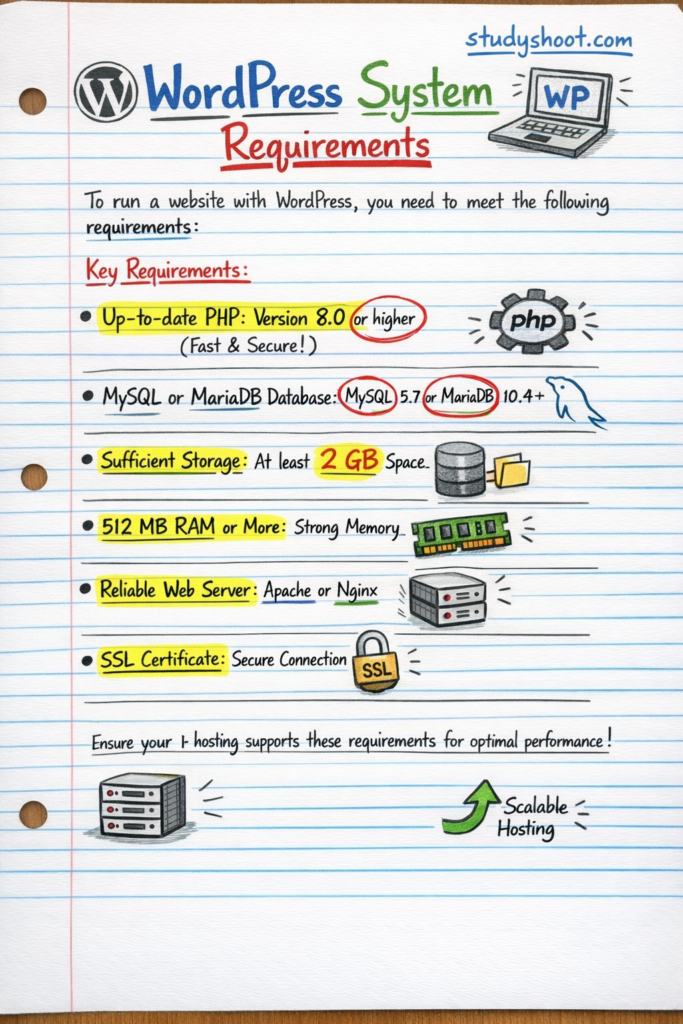 studyshoot.com
WordPress System
WP
Requirements
To run a website with WordPress, you need to meet the following
requirements:
Key Requirements:
• Up-to-date PHP: Version 8.0 or higher
php
(Fast & Secure!)
• MySQL or MariaDB Database: MySQL 5.7 or MariaDB 10.4+
• Sufficient Storage: At least 2 GB Space.
• 512 MB RAM or More: Strong Memory
• Reliable Web Server: Apache or Nginx
• SSL Certificate: Secure Connection
SSL
Ensure your hosting supports these requirements for optimal performance!
Scalable
Hosting